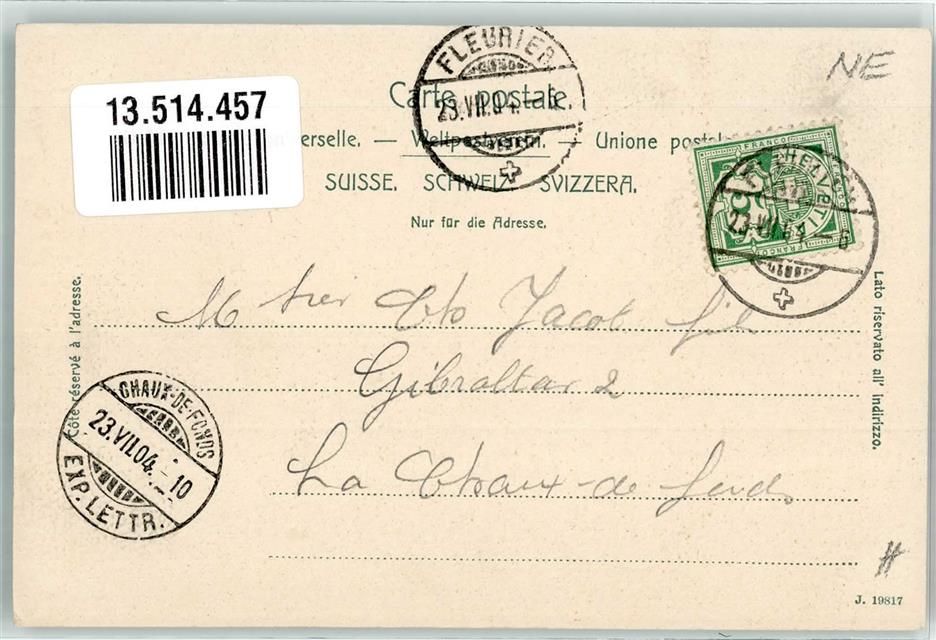 NE
FLEURIER
23.VII.04.
13.514.457
Carte postale.
erselle. — Weltpostverein. — Unione postale
SUISSE. SCHWEIZ. SVIZZERA.
Nur für die Adresse.
FRANCO
HELVETIA
5
23.VII.04
FRANCO
Côté réservé à l'adresse.
Lato riservato all' indirizzo.
Jacot fils
Gibraltar 2
La Chaux-de-fonds
CHAUX-DE-FONDS
23.VII.04. 10
EXP. LETTR.
#
J. 19817